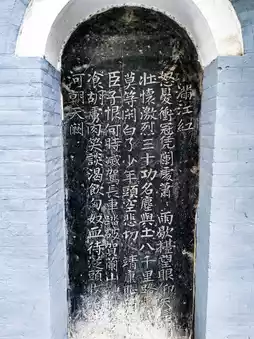 滿江红
怒髮衝冠凭闌處蕭=雨歇擡望眼仰天
壯懷激烈三十功名塵與土八千里路
莫等闲白了少年頭空悲切=靖康
臣子恨何時滅駕長車踏破賀蘭山
飡胡虜肉笑談渴飲匈奴血待從頭
河朝天闕